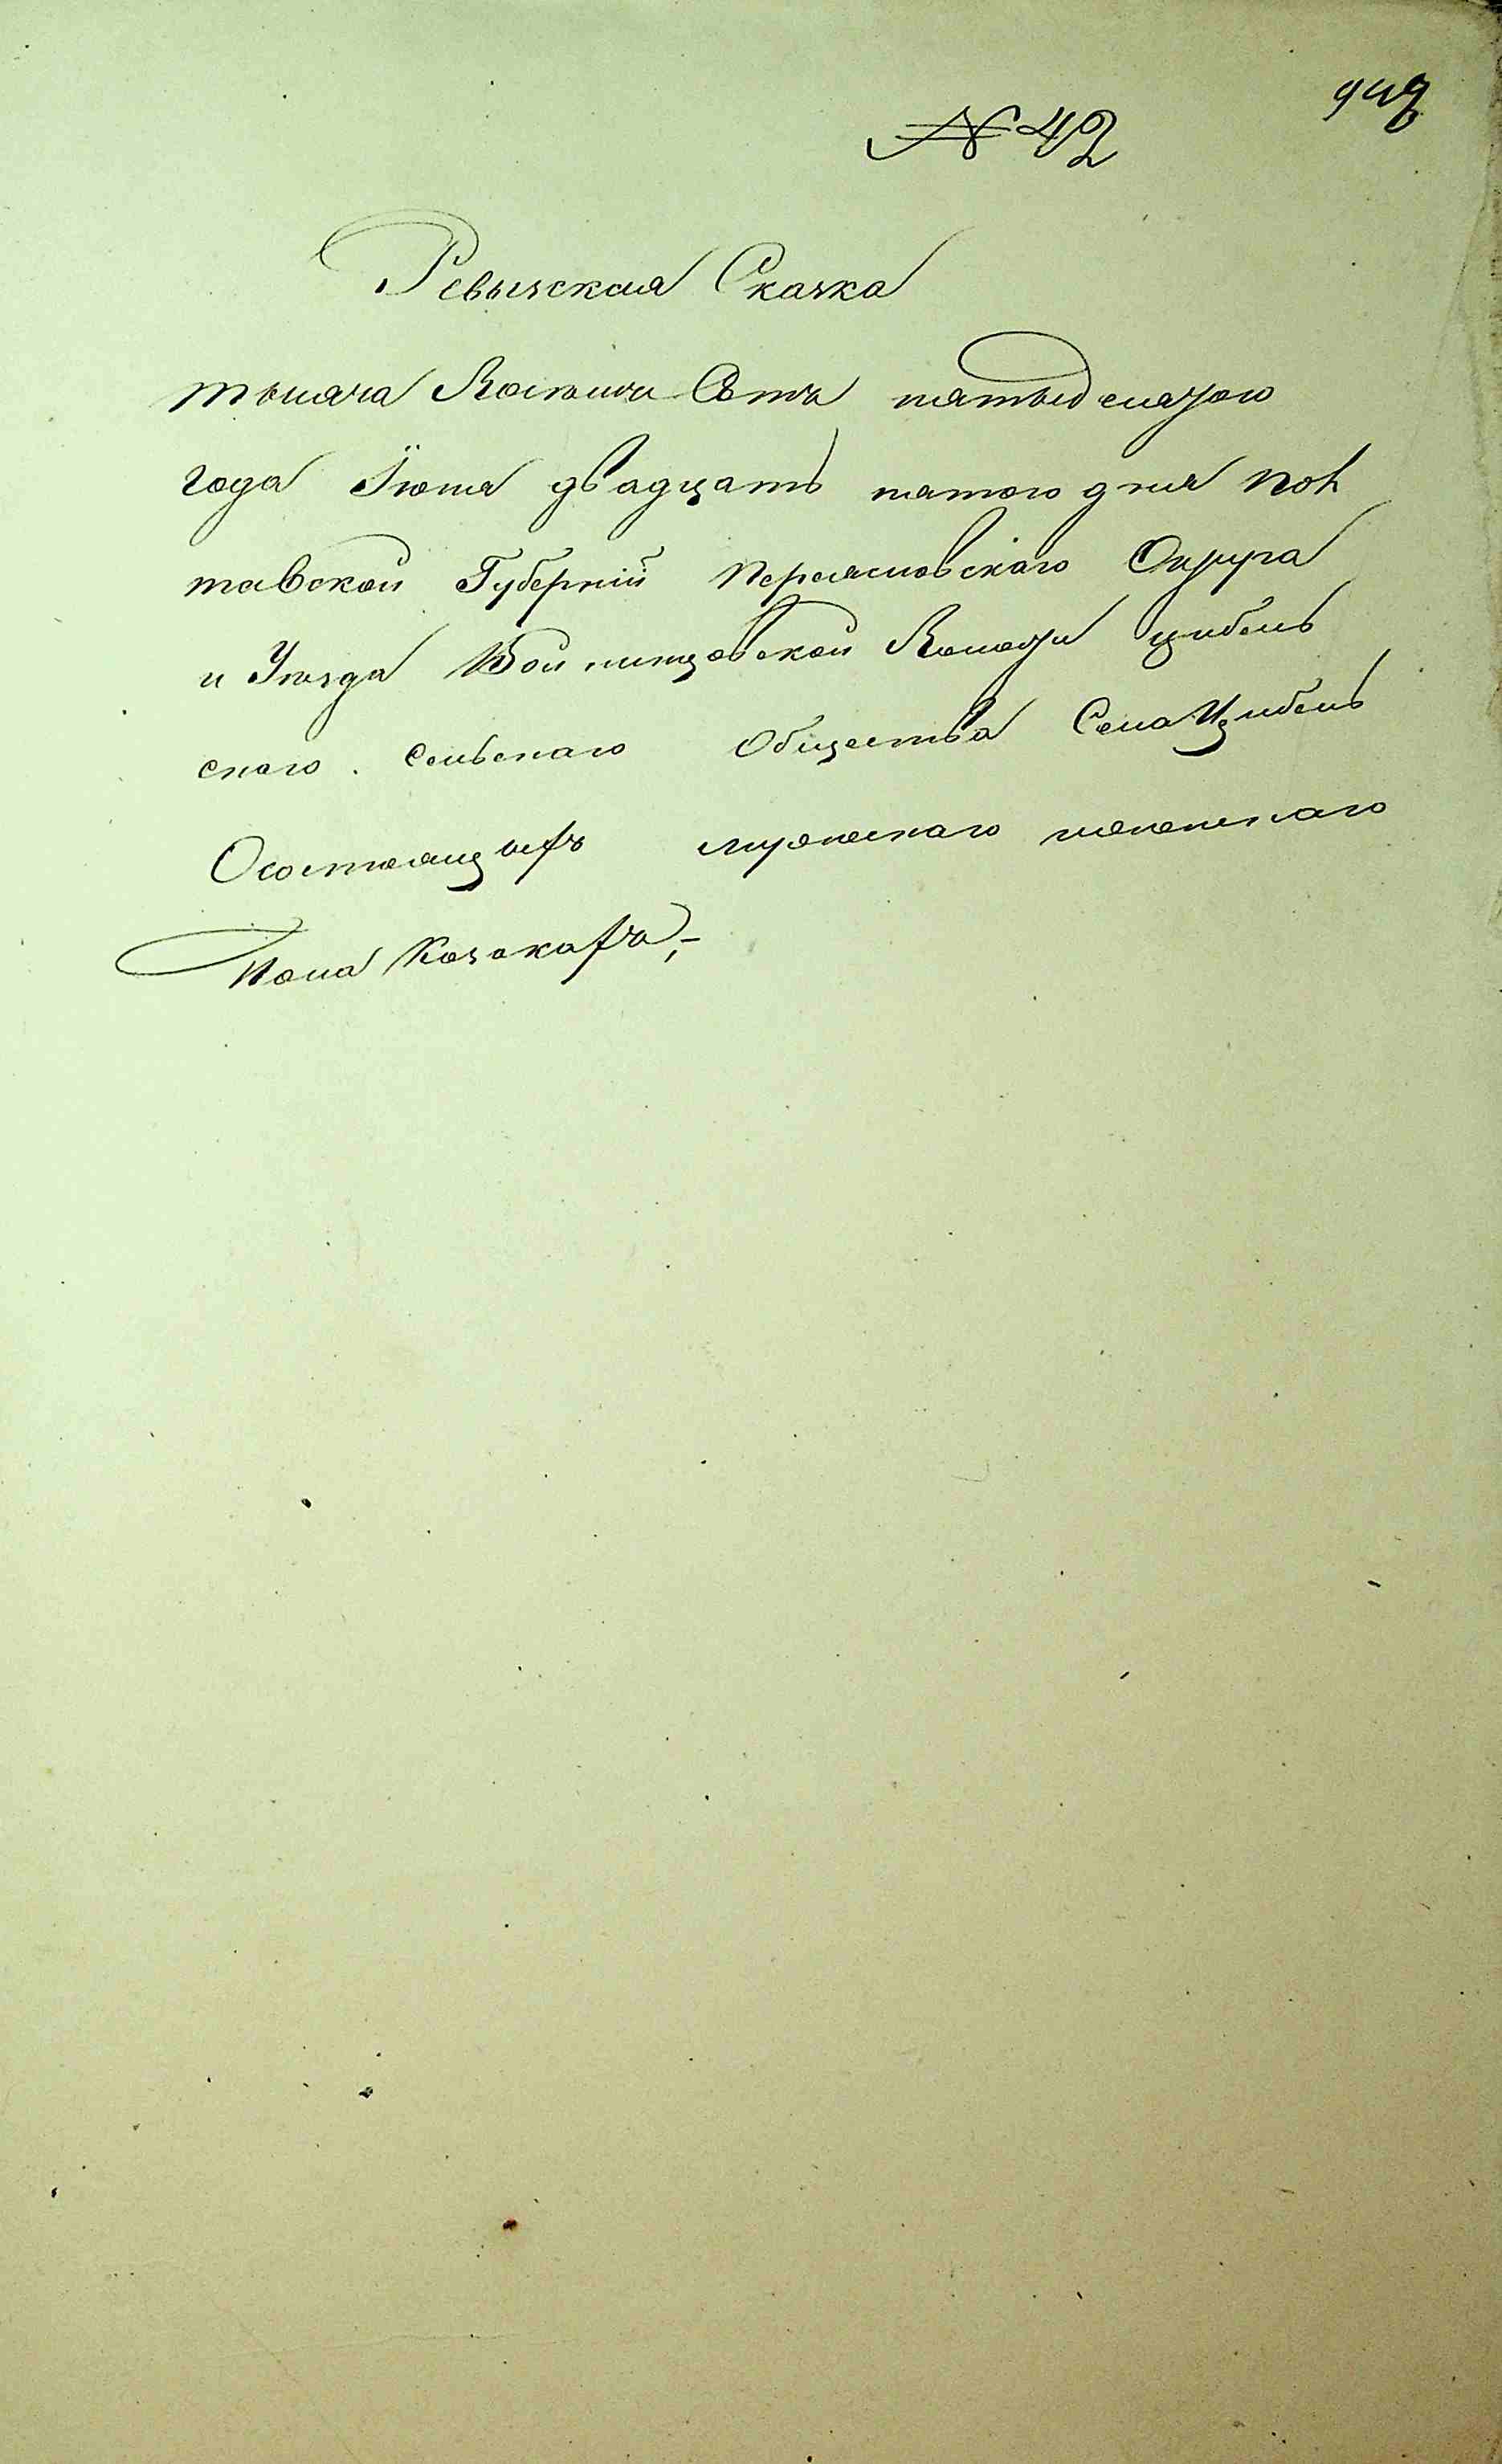 942
№ 42
Ревызская Сказка
тысяча Восемъ Сотъ пятьдесятого
года Іюня двадцать пятого дня Пол
тавской Губерніи Переяславскаго Округа
и Уѣзда Войтовской Волости Цибель
скаго сельскаго Общества Села Цибель
О состоящихъ мужескаго женскаго
Пола Козакахъ,-